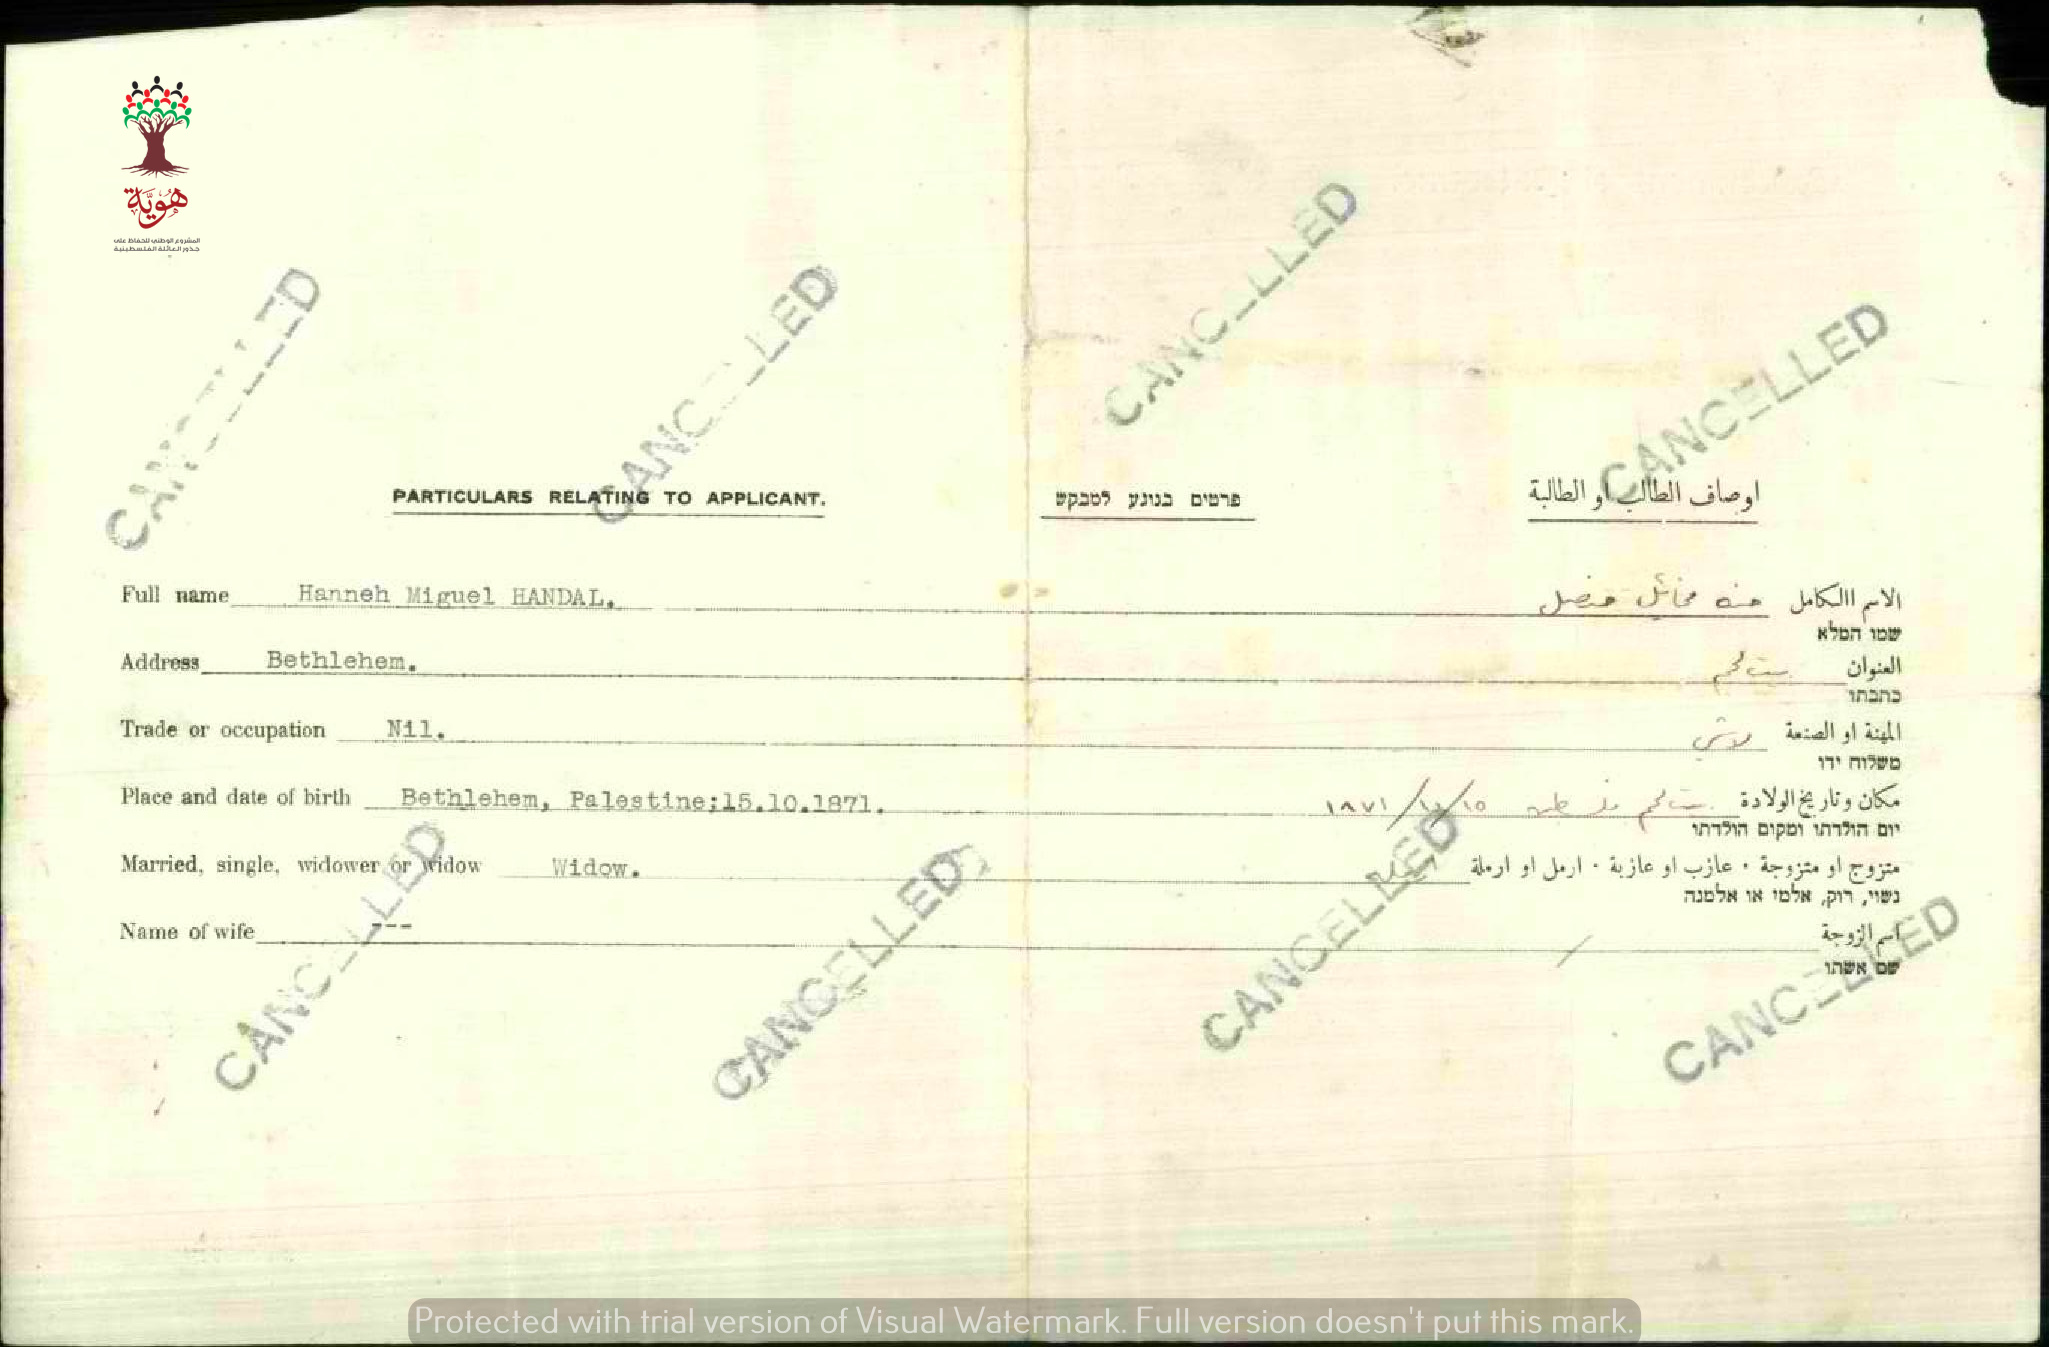 هوية
المشروع الوطني للحفاظ على
جذور العائلة الفلسطينية
CANCELLED
CANCELLED
CANCELLED
CANCELLED
PARTICULARS RELATING TO APPLICANT. פרטים בנוגע למבקש اوصاف الطالب او الطالبة
Full name Hanneh Miguel HANDAL. حنه مخائل حنضل الاسم االكامل
שמו המלא
Address Bethlehem. بيت لحم العنوان
כתבתו
Trade or occupation Nil. لاشي المهنة او الصنعة
משלוח ידו
Place and date of birth Bethlehem, Palestine;15.10.1871. بيت لحم فلسطين ١٥/١٠/١٨٧١ مكان وتاريخ الولادة
יום הולדתו ומקום הולדתו
Married, single, widower or widow Widow. ارملة متزوج او متزوجة ٠ عازب او عازبة ٠ ارمل او ارملة
נשוי, רוק, אלמן או אלמנה
Name of wife --- / اسم الزوجة
שם אשתו
CANCELLED
CANCELLED
CANCELLED
CANCELLED
Protected with trial version of Visual Watermark. Full version doesn't put this mark.